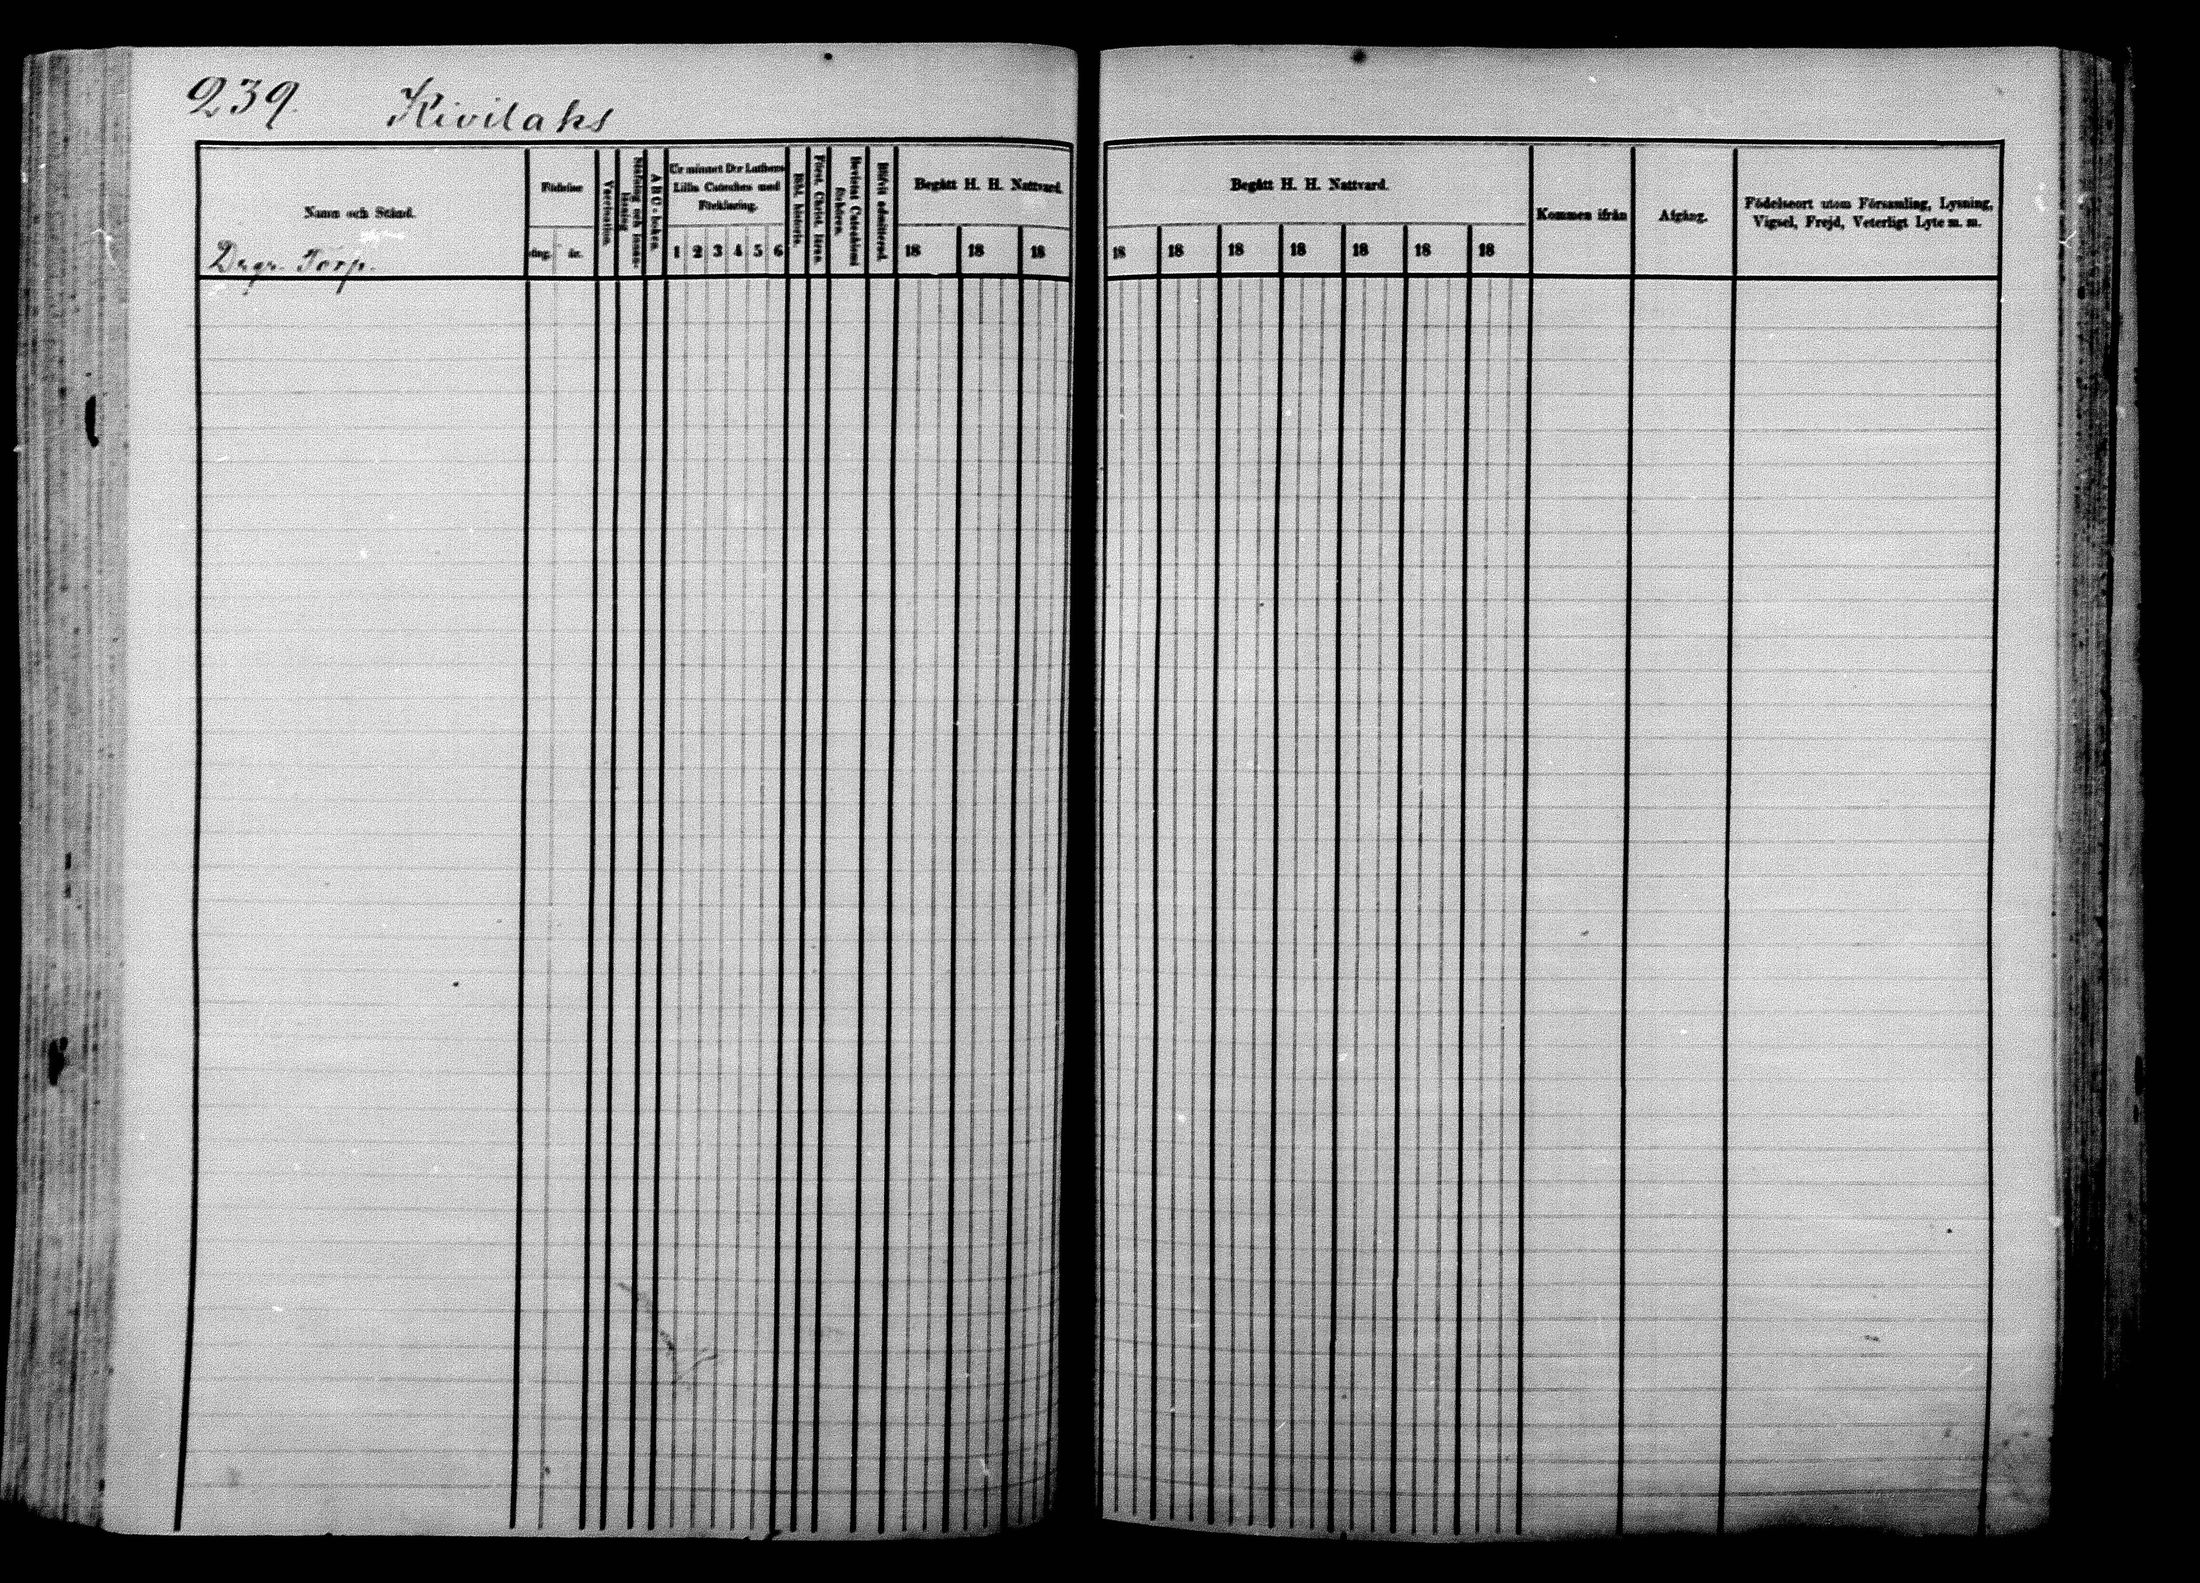 239. Kivilaks
Namn och Stånd.
Dragr. Torp.
Födelse
dag. år.
Vaccination.
Stafning och innan-läsning
A B C-boken.
Ur minnet D:r Luthers Lilla Cateches med Förklaring.
1 2 3 4 5 6
Bibl. historie.
Först. Christ. läran.
Bevistat Catechismi förhören.
Blifvit admitterad
Begått H. H. Nattvard.
18 18 18
Begått H. H. Nattvard.
18 18 18 18 18 18 18
Kommen ifrån
Afgång.
Födelseort utom Församling, Lysning,
Vigsel, Frejd, Veterligt Lyte m. m.